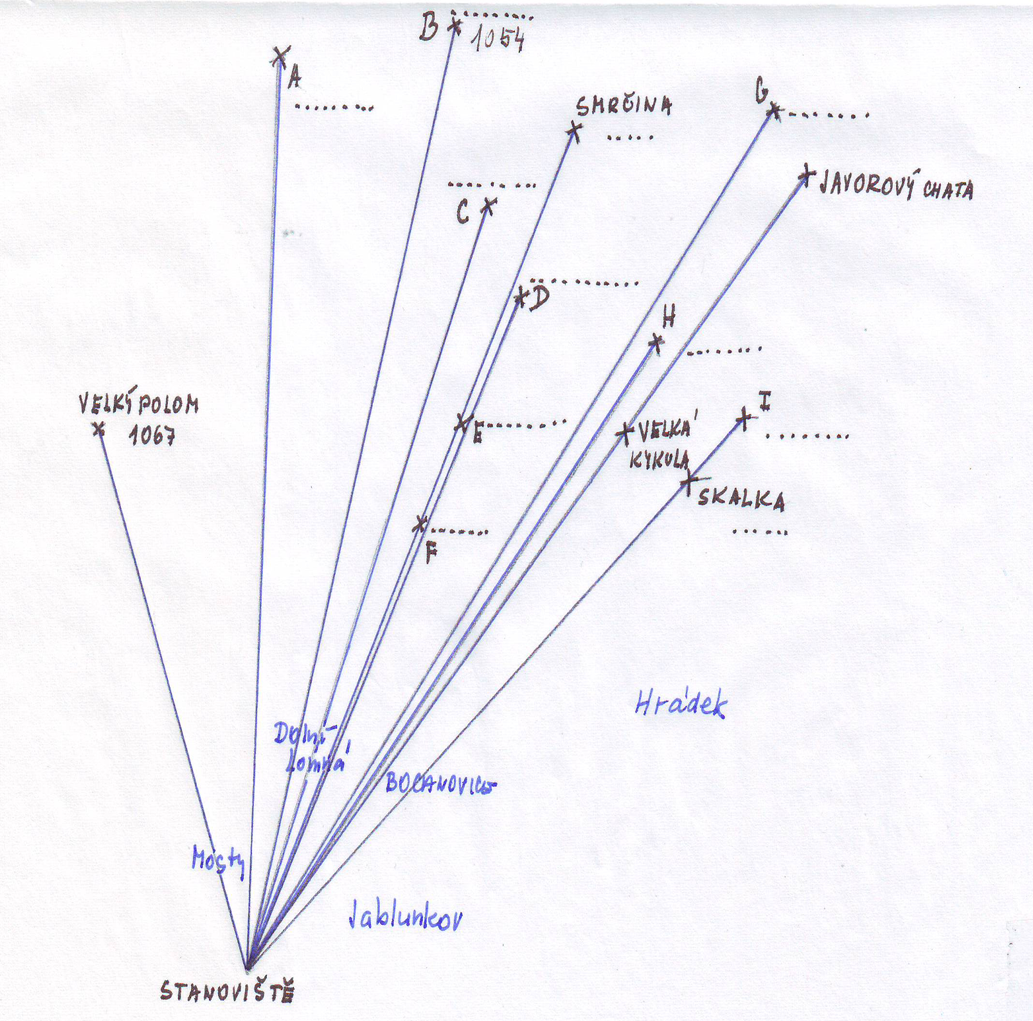 B ..........
1054
A
..........
SMRČINA
......
G ..........
JAVOROVÝ CHATA
..........
C
..........
D
H
..........
VELKÝ POLOM
1067
E ..........
I
..........
VELKÁ
KYKULA
SKALKA
......
F ........
Hrádek
Dolní
Lomná
BOCANOVICE
Mosty
Jablunkov
STANOVIŠTĚ